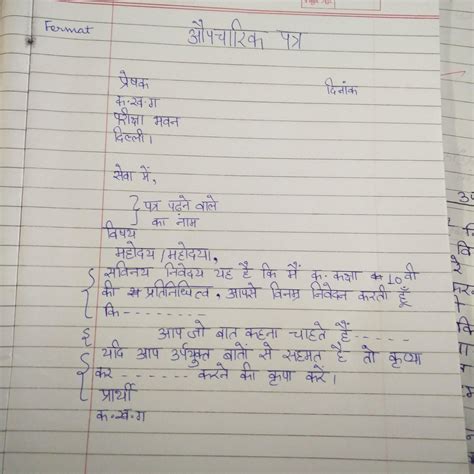 Format
औपचारिक पत्र
प्रेषक दिनांक
क.ख.ग
परीक्षा भवन
दिल्ली।
सेवा में,
पत्र पढ़ने वाले
का नाम
विषय
महोदय/महोदया,
सविनय निवेदय यह है कि मैं क. कक्षा 10 वी
की प्रतिनिधित्व, आपसे विनम्र निवेदन करती हूँ
कि - - - - - - - -
आप जो बात कहना चाहते हैं - - - - -
यदि आप उर्पयुक्त बातों से सहमत है तो कृप्या
कर - - - - - - - - करने की कृपा करें।
प्रार्थी
क.ख.ग